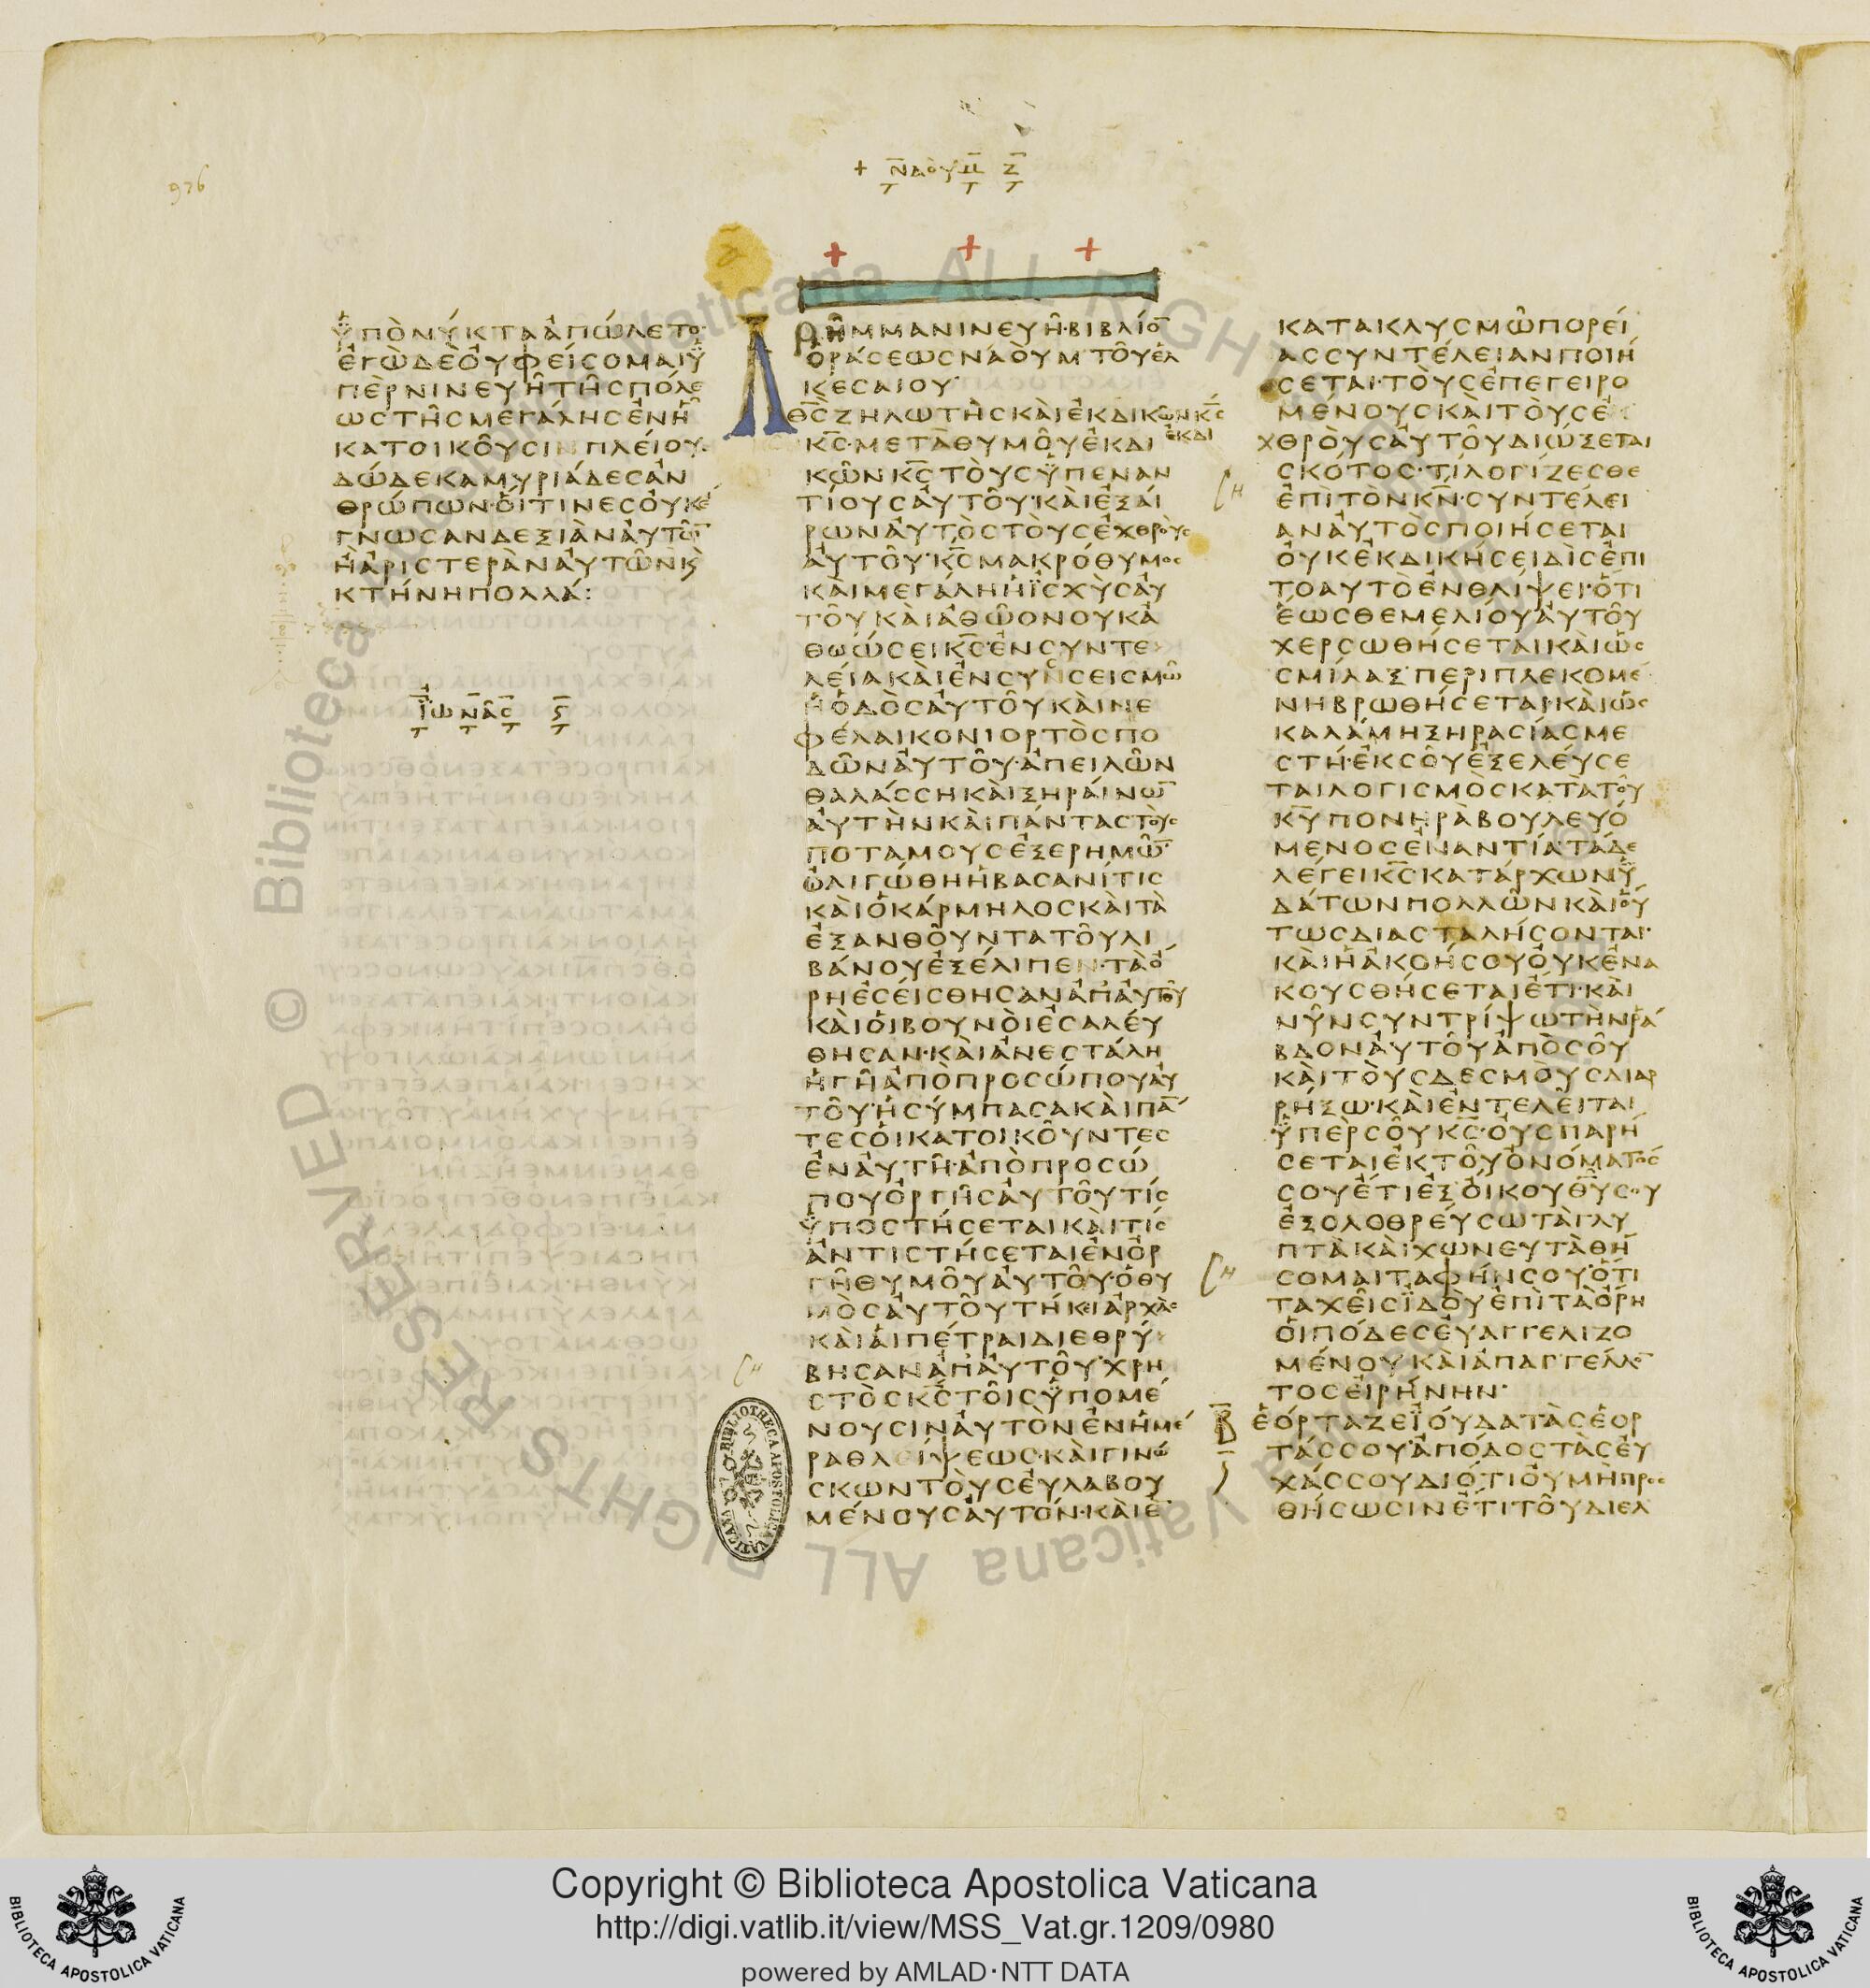 976
+ ΝΑΟΥΜ Ζ
ὙΠῸΝΎΚΤΑἈΠΏΛΕΤΟ·
ἘΓῺΔΈΟΥΦΕΊΣΟΜΑΙΫ
ΠῈΡΝΙΝΕΥΗ͂ΤΗ͂ΣΠΌΛΕ
ΩΣΤΗ͂ΣΜΕΓΆΛΗΣἘΝΗ͂
ΚΑΤΟΙΚΟΥ͂ΣΙΝΠΛΕΊΟΥΣ
ΔΏΔΕΚΑΜΥΡΙΆΔΕΣἈΝ
ΘΡΏΠΩΝ·ΟἽΤΙΝΕΣΟΥ̓ΚΕ
ΓΝΩΣΑΝΔΕΞΙᾺΝΑΥ̓ΤΩ͂
ἪἈΡΙΣΤΕΡᾺΝΑΥ̓ΤΩ͂ΝΚ
ΚΤΉΝΗΠΟΛΛΆ:
ἸΩΝΑ͂Σ Ϛ
ΛΗ͂ΜΜΑΝΙΝΕΥΗ͂·ΒΙΒΛΊΟ̅
ὉΡΆΣΕΩΣΝΑῸΥΜΤΟΥ͂ΕΛ
ΚΕΣΑΙΟΥ·
ΘΣ̅ΖΗΛΩΤῊΣΚΑῚἘΚΔΙΚΩ͂ΝΚΣ̅
ΚΣ̅·ΜΕΤᾺΘΥΜΟΥ͂ἘΚΔΙ ἘΚΔΙ
ΚΩ͂ΝΚΣ̅ΤΟῪΣὙΠΕΝΑΝ
ΤΊΟΥΣΑΥ̓ΤΟΥ͂·ΚΑῚἘΞΑΊ
ΡΩΝΑΥ̓ΤῸΣΤΟῪΣἘΧΘΡΟῪΣ
ΑΥ̓ΤΟΥ͂·ΚΣ̅ΜΑΚΡΌΘΥΜΟΣ
ΚΑῚΜΕΓΆΛΗἩἸΣΧῪΣΑΥ̓
ΤΟΥ͂ΚΑῚἈΘΩ͂ΟΝΟΥΚΑ
ΘΩΏΣΕΙΚΣ̅·ἘΝΣΥΝΤΕ
ΛΕΊΑΚΑῚἘΝΣΥΝΣΕΙΣΜΩ͂
ἩὉΔῸΣΑΥ̓ΤΟΥ͂ΚΑῚΝΕ
ΦΈΛΑΙΚΟΝΙΟΡΤῸΣΠΟ
ΔΩ͂ΝΑΥ̓ΤΟΥ͂·ἈΠΕΙΛΩ͂Ν
ΘΑΛΆΣΣΗΚΑῚΞΗΡΑΊΝΩ̅
ΑΥ̓ΤῊΝΚΑῚΠΆΝΤΑΣΤΟῪΣ
ΠΟΤΑΜΟΥΣἘΞΕΡΗΜΩ͂̅·
ὨΛΙΓΏΘΗἩΒΑΣΑΝΊΤΙΣ
ΚΑῚὉΚΆΡΜΗΛΟΣΚΑῚΤᾺ
ἘΞΑΝΘΟΥ͂ΝΤΑΤΟΥ͂ΛΙ
ΒΆΝΟΥἘΞΈΛΙΠΕΝ·ΤᾺὌ
ΡΗἘΣΕΊΣΘΗΣΑΝἈΠΑΥ̓ΤΟΥ͂
ΚΑῚΟἹΒΟΥΝΟῚἘΣΑΛΕΎ
ΘΗΣΑΝ·ΚΑῚἈΝΕΣΤΆΛΗ
ἩΓΗ͂ἈΠῸΠΡΟΣΏΠΟΥΑΥ̓
ΤΟΥ͂·ἩΣΎΜΠΑΣΑΚΑῚΠΑ̅
ΤΕΣΟἹΚΑΤΟΙΚΟΥ͂ΝΤΕΣ
ἘΝΑΥ̓ΤΗ͂·ἈΠῸΠΡΟΣΏ
ΠΟΥὈΡΓΗ͂ΣΑΥ̓ΤΟΥ͂ΤΊΣ
ὙΠΟΣΤΉΣΕΤΑΙΚΑῚΤΊΣ
ἈΝΤΙΣΤΉΣΕΤΑΙἘΝὈΡ
ΓΗ͂ΘΥΜΟΥ͂ΑΥ̓ΤΟΥ͂·ὉΘΥ
ΜῸΣΑΥ̓ΤΟΥ͂ΤΉΚΕΙἈΡΧᾺΣ
ΚΑῚΑἹΠΈΤΡΑΙΔΙΕΘΡΎ
ΒΗΣΑΝἈΠΑΥ̓ΤΟΥ͂·ΧΡΗ
ΣΤῸΣΚΣ̅ΤΟΙ͂ΣὙΠΟΜΈ
ΝΟΥΣΙΝΑΥ̓ΤῸΝἘΝἩΜΈ
ΡΑΘΛΕΊΨΕΩΣ·ΚΑῚΓΙΝΏ
ΣΚΩΝΤΟῪΣΕΥ̓ΛΑΒΟΥ
ΜΈΝΟΥΣΑΥ̓ΤΌΝ·ΚΑῚἘ̅
ΚΑΤΑΚΛΥΣΜΩ͂ΠΟΡΕΊ
ΑΣΣΥΝΤΈΛΕΙΑΝΠΟΙΉ
ΣΕΤΑΙ·ΤΟῪΣἘΠΕΓΕΙΡΟ
ΜΈΝΟΥΣΚΑῚΤΟῪΣἘ
ΧΘΡΟῪΣΑΥ̓ΤΟΥ͂ΔΙΏΞΕΤΑΙ
ΣΚΌΤΟΣ·ΤΊΛΟΓΊΖΕΣΘΕ
ἘΠῚΤῸΝΚΝ̅·ΣΥΝΤΈΛΕΙ
ΑΝΑΥ̓ΤῸΣΠΟΙΉΣΕΤΑΙ
ΟΥ̓ΚἘΚΔΙΚΉΣΕΙΔῚΣἘΠΙ
ΤΟΑΥΤῸἘΝΘΛΊΨΕΙ·ὍΤΙ
ἝΩΣΘΕΜΕΛΊΟΥΑΥ̓ΤΟΥ͂
ΧΕΡΣΩΘΉΣΕΤΑΙΚΑῚὩΣ
ΣΜΊΛΑΞΠΕΡΙΠΛΕΚΟΜΈ
ΝΗΒΡΩΘΉΣΕΤΑΙ·ΚΑῚὩΣ
ΚΑΛΆΜΗΞΗΡΑΣΊΑΣΜΕ
ΣΤΉ·ἘΚΣΟΥ͂ἘΞΕΛΕΎΣΕ
ΤΑΙΛΟΓΙΣΜῸΣΚΑΤᾺΤΟΥ͂
ΚΥ̅ΠΟΝΗΡᾺΒΟΥΛΕΥΌ
ΜΕΝΟΣἘΝΑΝΤΊΑ·ΤΆΔΕ
ΛΈΓΕΙΚΣ̅·ΚΑΤΆΡΧΩΝΫ
ΔΆΤΩΝΠΟΛΛΩ͂ΝΚΑῚΟὟ
ΤΩΣΔΙΑΣΤΑΛΉΣΟΝΤΑΙ·
ΚΑῚἩἈΚΟΉΣΟΥΟΥ̓ΚἘΝΑ
ΚΟΥΣΘΉΣΕΤΑΙἜΤΙ·ΚΑῚ
ΝΥ͂ΝΣΥΝΤΡΊΨΩΤῊΝΡΆ
ΒΔΟΝΑΥ̓ΤΟΥ͂ἈΠῸΣΟΥ͂
ΚΑῚΤΟῪΣΔΕΣΜΟΥΣΔΙΑΡ
ΡΉΞΩ·ΚΑῚἘΝΤΕΛΕΙ͂ΤΑΙ
ὙΠΈΡΣΟΥ͂ΚΣ̅·ΟΥ̓ΣΠΑΡΉ
ΣΕΤΑΙἘΚΤΟΥ͂ὈΝΌΜΑΤΌΣ
ΣΟΥἜΤΙἘΞΟἼΚΟΥΘΥ̅ΣΟΥ
ἘΞΟΛΟΘΡΕΎΣΩΤᾺΓΛΥ
ΠΤᾺΚΑῚΧΩΝΕΥΤᾺΘΉ
ΣΟΜΑΙΤΑΦΉΝΣΟΥ·ὍΤΙ
ΤΑΧΕΙ͂ΣἸΔΟῪἘΠῚΤᾺὌΡΗ
ΟἹΠΌΔΕΣΕΥ̓ΑΓΓΕΛΙΖΟ
ΜΈΝΟΥΚΑῚἈΠΑΓΓΈΛΛΟ̅
ΤΟΣΕἸΡΉΝΗΝ·
Β ἙΌΡΤΑΖΕἸΟΎΔΑΤᾺΣἙΟΡ
ΤΆΣΣΟΥ·ἈΠΌΔΟΣΤᾺΣΕΥ̓
ΧΆΣΣΟΥΔΙΌΤΙΟΥ̓ΜῊΠΡΟΣ
ΘΉΣΩΣΙΝἜΤΙΤΟΥ͂ΔΙΕΛ
© Biblioteca Vaticana ALL RIGHTS RESERVED
BIBLIOTHECA APOSTOLICA VATICANA
Copyright © Biblioteca Apostolica Vaticana
http://digi.vatlib.it/view/MSS_Vat.gr.1209/0980
powered by AMLAD·NTT DATA
BIBLIOTECA APOSTOLICA VATICANA
BIBLIOTECA APOSTOLICA VATICANA